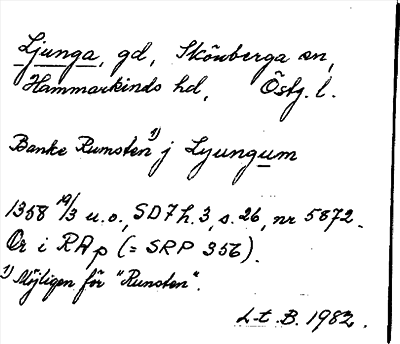 Ljunga, gd, Skönberga sn,
Hammarkinds hd, Östg. l.
Banke Rumsten 1) j Lyungum
1358 19/3 u.o., SD 7 h. 3, s. 26, nr 5872.
Or i RAp (= SRP 356).
1) Möjligen för "Runsten".
L-t B. 1982.